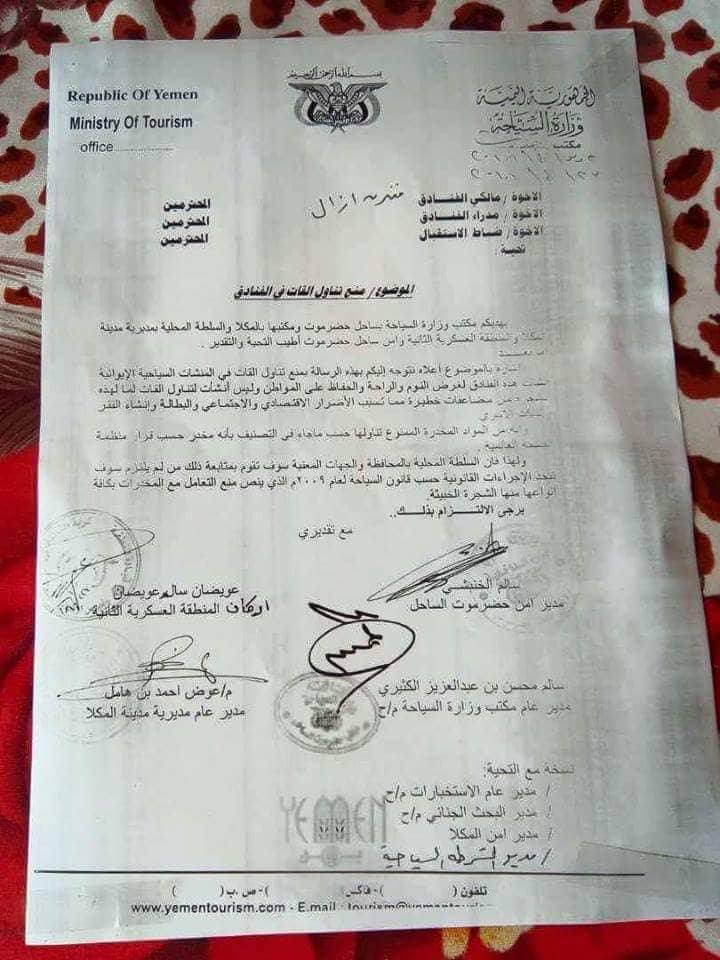 بسم الله الرحمن الرحيم
Republic Of Yemen
Ministry Of Tourism
office
الجمهورية اليمنية
وزارة السياحة
مكتب
الاخوة / مالكي الفنادق المحترمين
فندق ازال
الاخوة / مدراء الفنادق المحترمين
الاخوة / ضباط الاستقبال المحترمين
تحية .
الموضوع / منع تناول القات في الفنادق
يهديكم مكتب وزارة السياحة بساحل حضرموت ومكتبها بالمكلا والسلطة المحلية بمديرية مدينة
المكلا والمنطقة العسكرية الثانية وامن ساحل حضرموت أطيب التحية والتقدير .
بالموضوع أعلاه نتوجه إليكم بهذه الرسالة بمنع تناول القات في المنشات السياحية الإيوائية
هذه الفنادق لغرض النوم والراحة والحفاظ على المواطن وليس أنشأت لتناول القات لما لهذه
من مضاعفات خطيرة مما تسبب الأضرار الاقتصادي والاجتماعي والبطالة وإنشاء الفقر
من المواد المخدرة الممنوع تناولها حسب ماجاء في التصنيف بأنه مخدر حسب قرار منظمة
العالمية
ولهذا فان السلطة المحلية بالمحافظة والجهات المعنية سوف تقوم بمتابعة ذلك من لم يلتزم سوف
الإجراءات القانونية حسب قانون السياحة لعام ٢٠٠٩م الذي ينص منع التعامل مع المخدرات بكافة
أنواعها منها الشجرة الخبيثة.
يرجى الالتزام بذلك..
مع تقديري
سالم الخنبشي
مدير امن حضرموت الساحل
عويضان سالم عويضان
اركان المنطقة العسكرية الثانية
سالم محسن بن عبدالعزيز الكثيري
مدير عام مكتب وزارة السياحة م/ح
م/عوض احمد بن هامل
مدير عام مديرية مدينة المكلا
نسخة مع التحية:
/ مدير عام الاستخبارات م/ح
/ مدير البحث الجنائي م/ح
/ مدير امن المكلا
/ مدير الشرطه السياحية
YEMEN
تلفون ( ) - فاكس ( ) - ص.ب ( )
www.yementourism.com - E.mail :